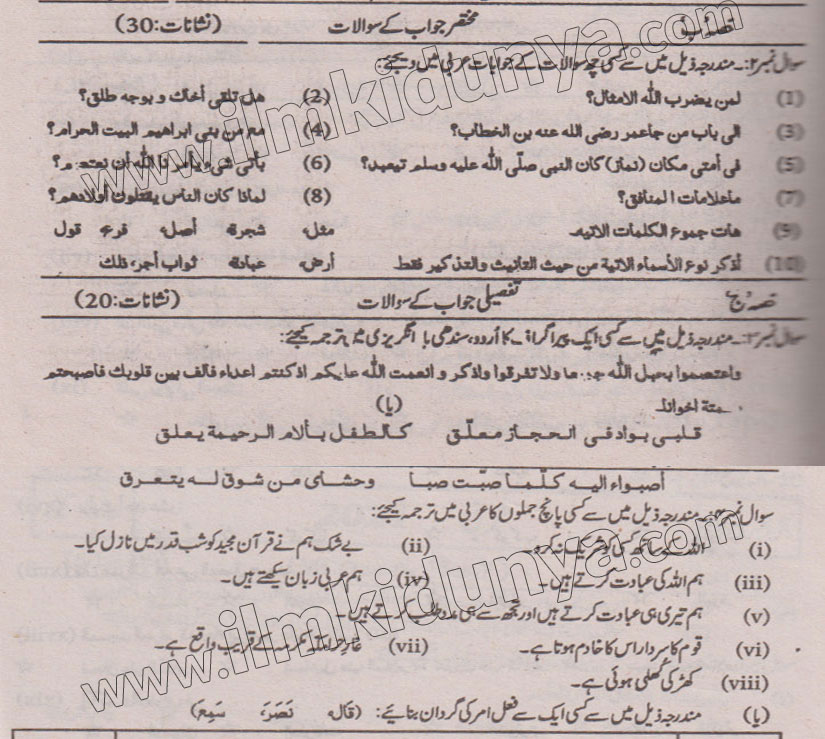 حصہ ’ب‘ مختصر جواب کے سوالات (نشانات:30)
سوال نمبر ۲:۔ مندرجہ ذیل میں سے کسی چھ سوالات کے جوابات عربی میں دیجئے:
(1) لمن يضرب الله الامثال؟ (2) هل تلقى أخاك و بوجه طلق؟
(3) الى باب من جاء عمر رضى الله عنه بن الخطاب؟ (4) مع من بنى ابراهيم البيت الحرام؟
(5) فى أمتى مكان (نماز) كان النبى صلّى الله عليه وسلم تيعبد؟ (6) بأى شىء يأمرنا الله أن نعتصم؟
(7) ماعلامات المنافق؟ (8) لماذا كان الناس يقتلون أولادهم؟
(9) هات جموع الكلمات الاتيه۔ مثل، شجرة، أصل، فرع، قول
(10) أذكر نوع الأسماء الاتية من حيث التانيث والتذكير فقط أرض، عبادة، ثواب أجر، فلك
حصہ ’ج‘ تفصیلی جواب کے سوالات (نشانات:20)
سوال نمبر ۳:۔ مندرجہ ذیل میں سے کسی ایک پیراگراف کا اُردو، سندھی یا انگریزی میں ترجمہ کیجئے:
واعتصموا بحبل الله جميعا ولا تفرقوا واذكر و انعمت الله عليكم اذكنتم اعداء فالف بين قلوبك فاصبحتم
اخوانا۔
(یا)
قلبى بواد فى الحجاز معلّق كالطفل بألام الرحيمة يعلق
أصبواء اليه كلّما صبّت صبا وحشاى من شوق له يتعرق
سوال نمبر مندرجہ ذیل میں سے کسی پانچ جملوں کا عربی میں ترجمہ کیجئے:
(i) اللہ کے ساتھ کسی کو شریک نہ کرو۔ (ii) بے شک ہم نے قرآن مجید کو شب قدر میں نازل کیا۔
(iii) ہم اللہ کی عبادت کرتے ہیں۔ (iv) ہم عربی زبان سیکھتے ہیں۔
(v) ہم تیری ہی عبادت کرتے ہیں اور تجھ سے ہی مدد طلب کرتے ہیں۔
(vi) قوم کا سردار اس کا خادم ہوتا ہے۔ (vii) غارِحرا مکہ مکرمہ کے قریب واقع ہے۔
(viii) کھڑکی کُھلی ہوئی ہے۔
(یا) مندرجہ ذیل میں سے کسی ایک سے فعل امر کی گردان بنائیے: (قَالَ، نَصَرَ، سَمِعَ)
www.ilmkidunya.com
www.ilmkidunya.com